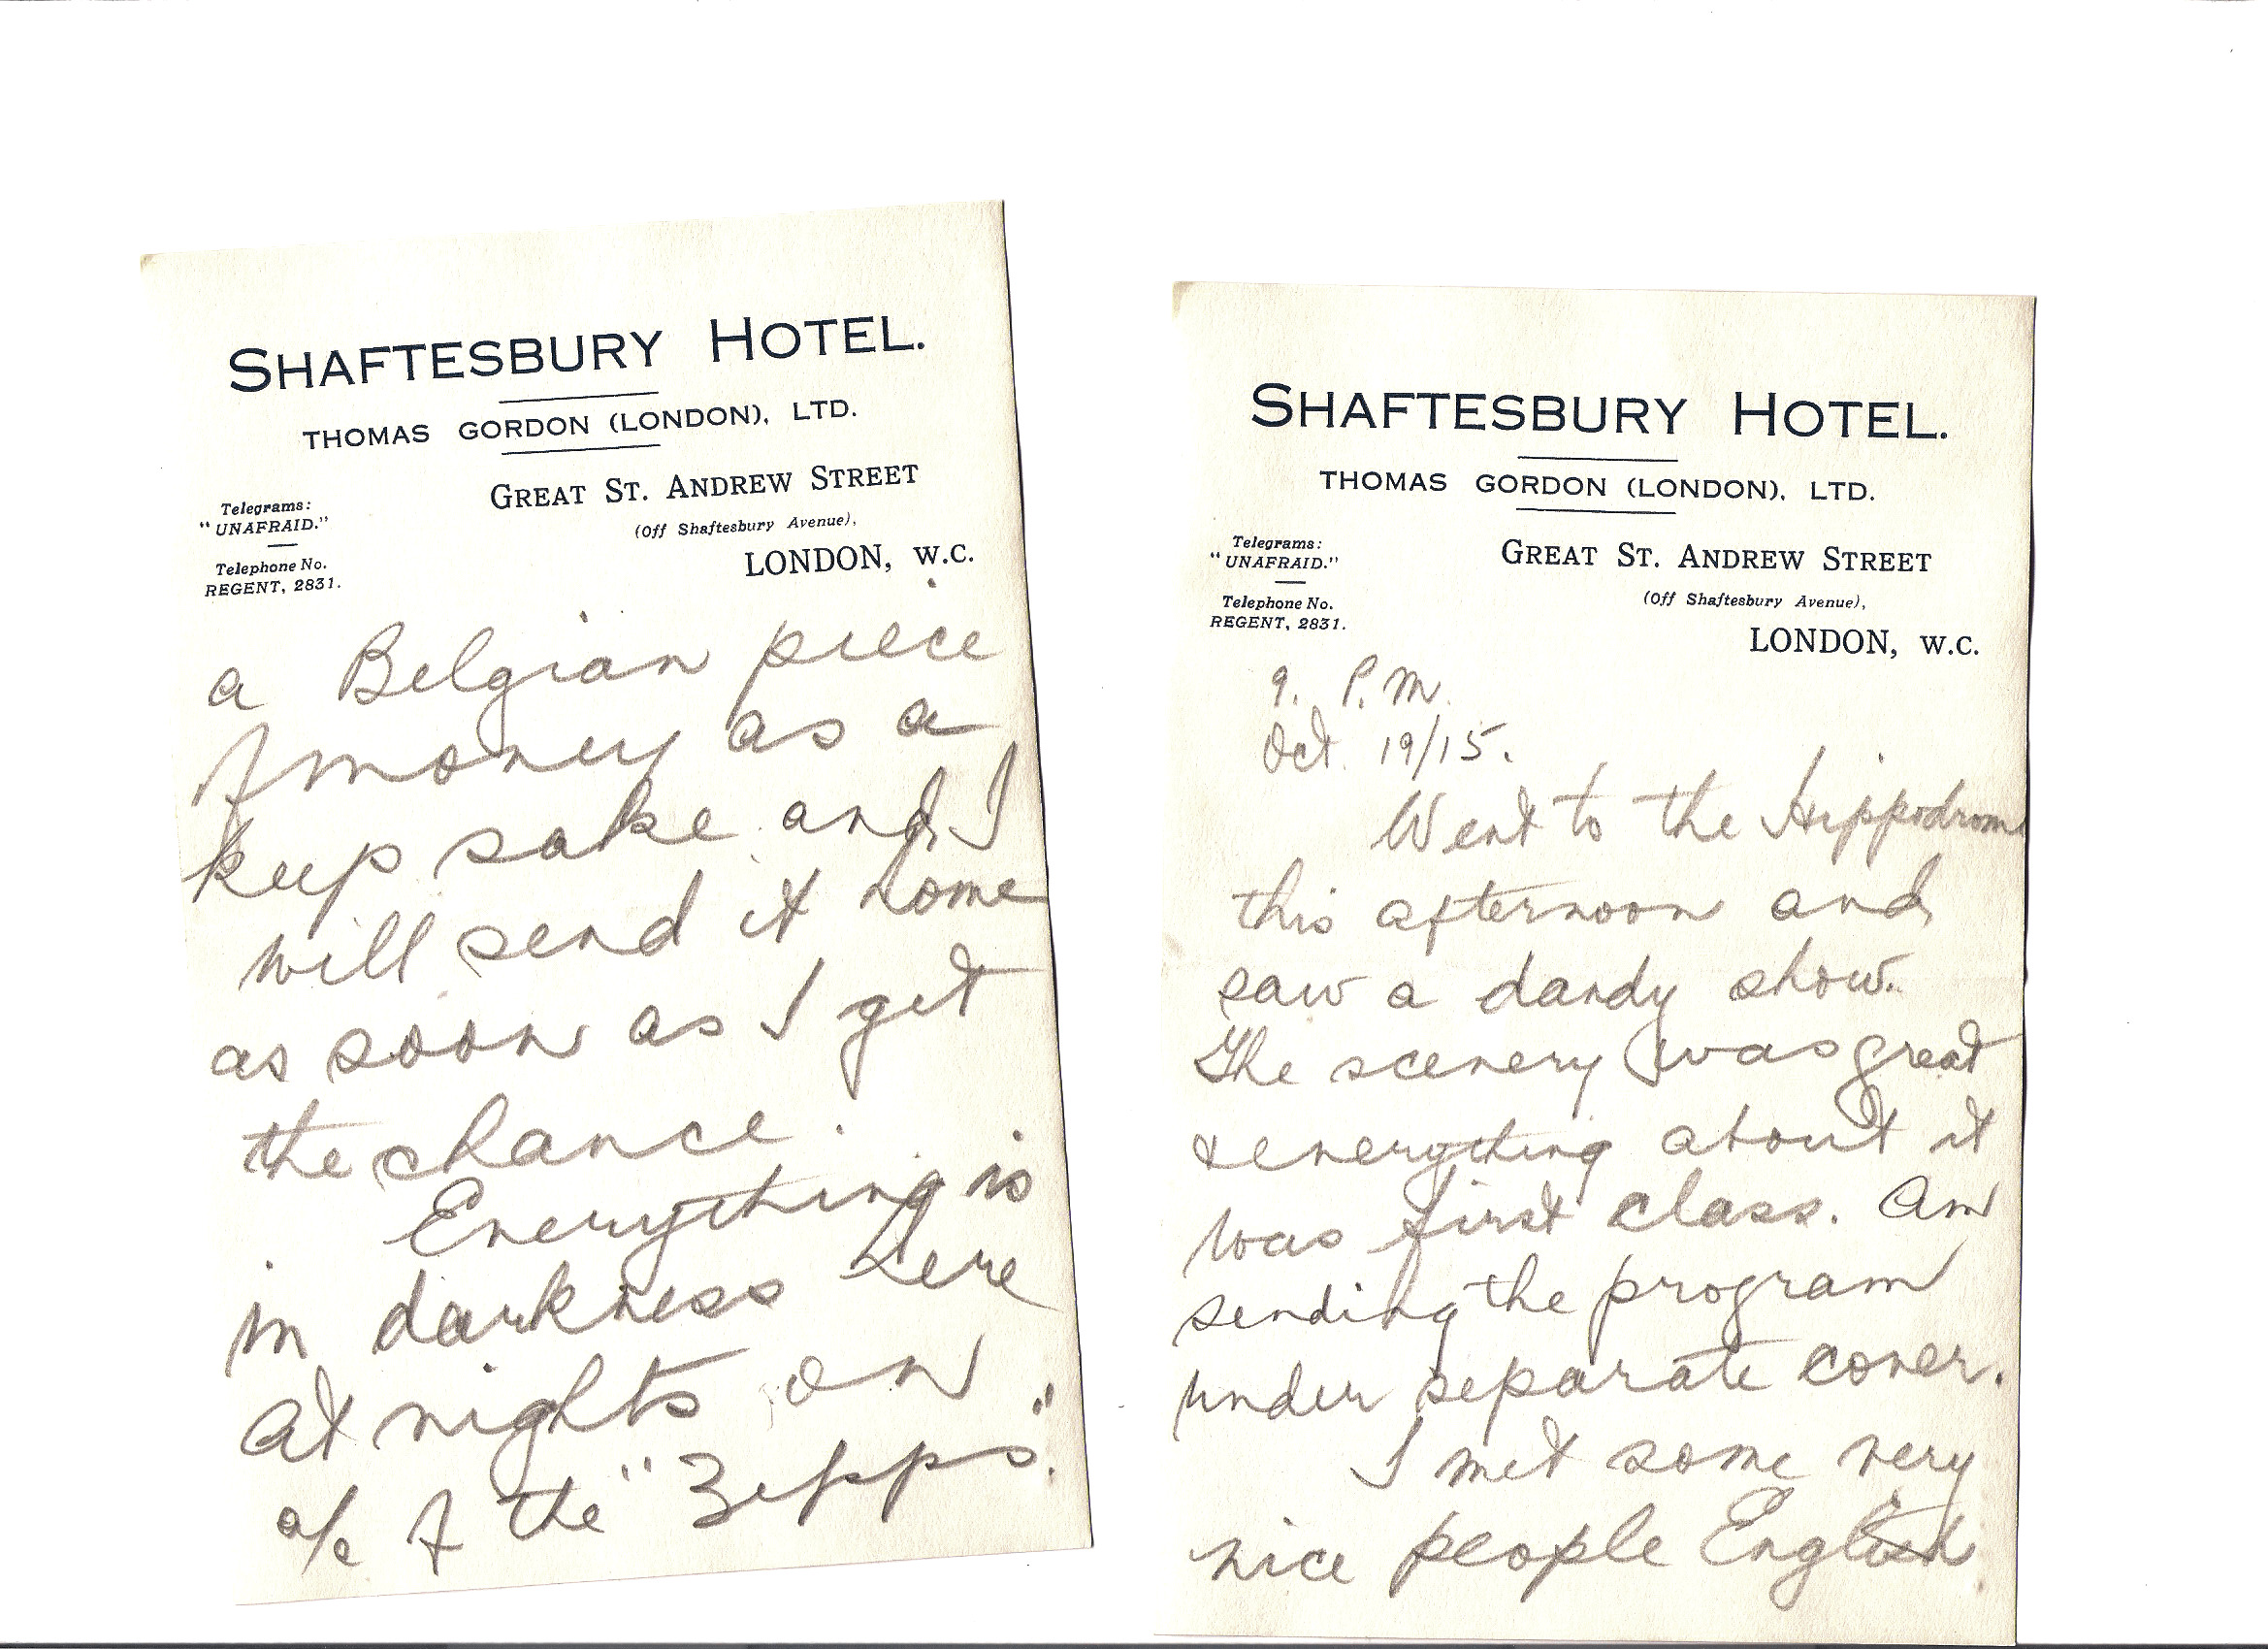 SHAFTESBURY HOTEL.
THOMAS GORDON (LONDON), LTD.
Telegrams:
"UNAFRAID."
Telephone No.
REGENT, 2831.
GREAT ST. ANDREW STREET
(Off Shaftesbury Avenue),
LONDON, W.C.
a Belgian piece
of money as a
keep sake and I
will send it home
as soon as I get
the chance.
Everything is
in darkness here
at nights on
a/c of the "Zepps".
SHAFTESBURY HOTEL.
THOMAS GORDON (LONDON), LTD.
Telegrams:
"UNAFRAID."
Telephone No.
REGENT, 2831.
GREAT ST. ANDREW STREET
(Off Shaftesbury Avenue),
LONDON, W.C.
9. P.M.
Oct. 19/15.
Went to the Hippodrome
this afternoon and
saw a dandy show.
The scenery was great
& everything about it
was first class. Am
sending the program
under separate cover.
I met some very
nice people English